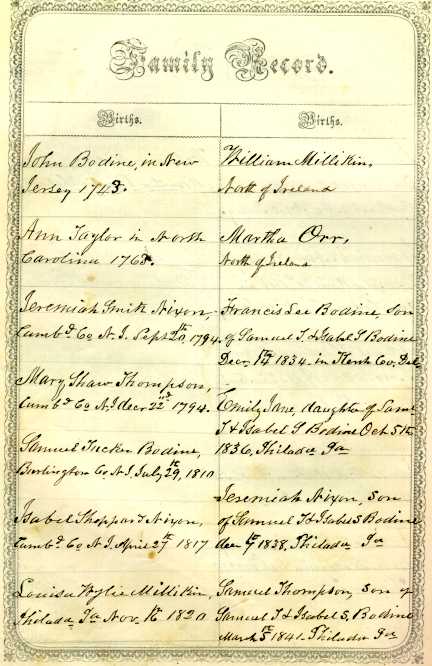 Family Record.
Births.
John Bodine, in New
Jersey 1743.
Ann Taylor in North
Carolina 1763.
Jeremiah Smith Nixon,
Cumbd. Co. N. J. Sept 20th 1794.
Mary Shaw Thompson,
Cumbd. Co. N. J. dec 22nd 1794.
Samuel Tucker Bodine,
Burlington Co N. J. July 29th, 1810
Isabel Sheppard Nixon,
Cumbd. Co. N. J. April 27th 1817
Louisa Wylie Millikin,
Philada Pa Nov. 1820
Births.
William Millikin,
North of Ireland
Martha Orr,
North of Ireland
Francis Lee Bodine, son
of Samuel T. & Isabel S Bodine
Decr. 1834. in Kent Co, Del
Emily Jane, daughter of Saml
T & Isabel S Bodine Oct 5th
1836, Philada Pa
Jeremiah Nixon, son
of Samuel T & Isabel S Bodine
dec 1838, Philada Pa
Samuel Thompson, son of
Samuel T & Isabel S, Bodine
March 5th 1841. Philada Pa